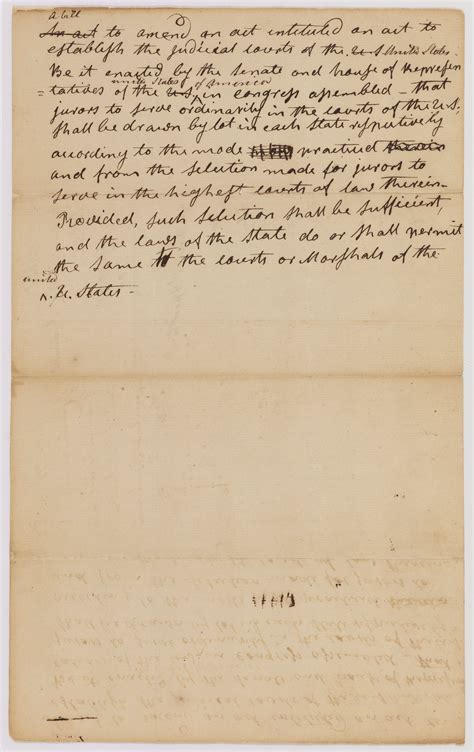 A bill
An act to amend an act intituled an act to
establish the judicial courts of the U S United States.
Be it enacted by the Senate and house of Represen
united States of America
=tatives of the U.S, in congress assembled – that
jurors to serve ordinarily in the courts of the U.S.
shall be drawn by lot in each State respectively
according to the mode practised therein
and from the selection made for jurors to
serve in the highest courts of law therein–
Provided, such selection shall be sufficient,
and the laws of the State do or shall permit
the same to the courts or Marshals of the
united
^. U. States –